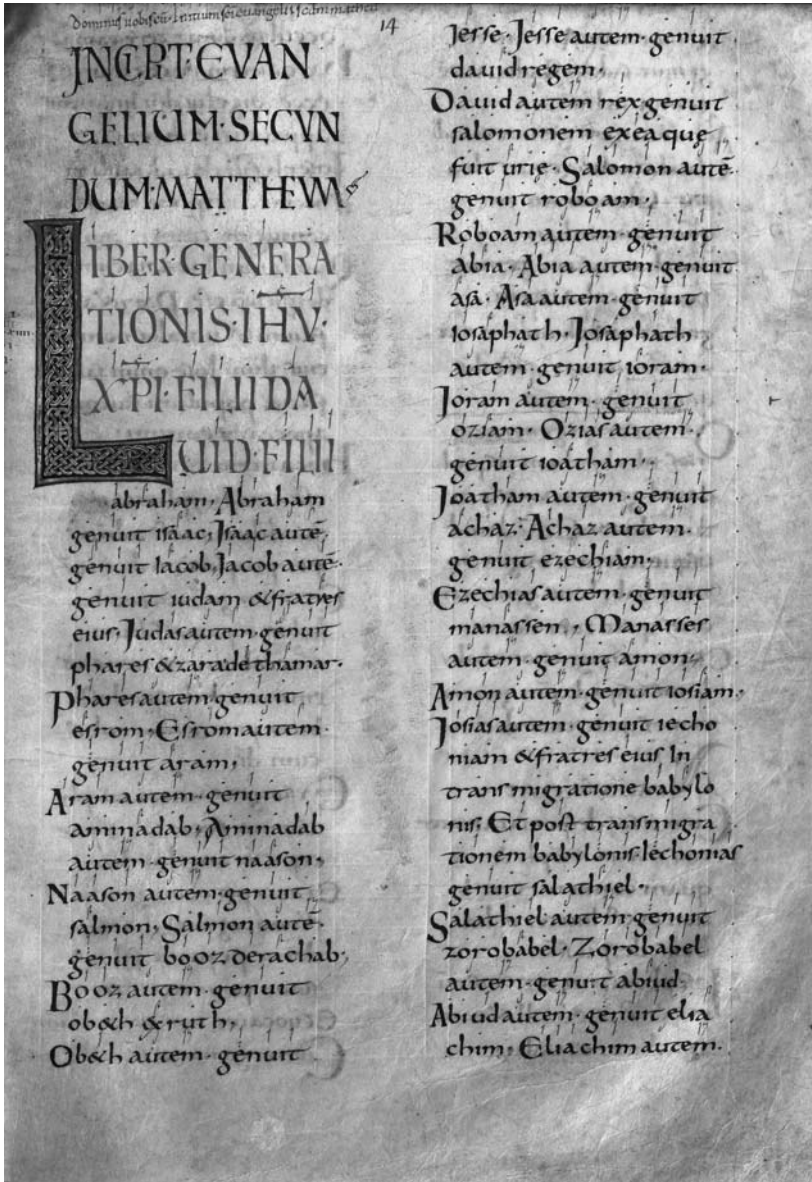 Dominus uobiscū. Initium sci euangelii scdm matheū
14
INCIPIT·EVAN
GELIUM·SECVN
DUM·MATTHEVM
LIBER·GENERA
TIONIS·IHV·
XPI·FILII DA
UID·FILII
abraham. Abraham
genuit isaac, Isaac autē
genuit iacob, Jacob autē
genuit iudam &fratres
eius. Judas autem·genuit
phares &zara de thamar.
Phares autem genuit
esrom, Esrom autem
genuit aram,
Aram autem·genuit
aminadab, Aminadab
autem·genuit naason,
Naason autem·genuit
salmon, Salmon autē
genuit booz de rachab,
Booz autem·genuit
ob&h &ruth,
Ob&h autem·genuit
iesse. Jesse autem·genuit
dauid regem.
Dauid autem rex genuit
salomonem ex ea quę
fuit urie. Salomon autē
genuit roboam.
Roboam autem·genuit
abia. Abia autem·genuit
asa. Asa autem·genuit
iosaphath. Josaphath
autem·genuit ioram.
Joram autem·genuit
oziam. Ozias autem
genuit ioatham.
Joatham autem·genuit
achaz. Achaz autem
genuit ezechiam,
Ezechias autem·genuit
manassen, Manasses
autem·genuit amon,
Amon autem·genuit iosiam.
Josias autem·genuit iecho
niam &fratres eius In
transmigratione babylo
nis. Et post transmigra
tionem babylonis·Iechonias
genuit salathiel.
Salathiel autem·genuit
zorobabel. Zorobabel
autem·genuit abiud.
Abiud autem·genuit elia
chim, Eliachim autem.